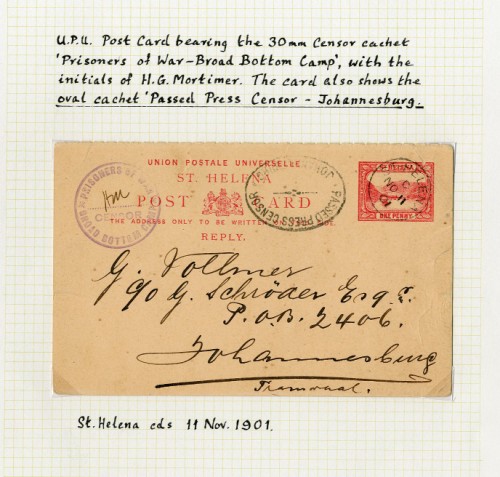 U.P.U. Post Card bearing the 30mm Censor cachet
'Prisoners of War-Broad Bottom Camp', with the
initials of H.G. Mortimer. The card also shows the
oval cachet 'Passed Press Censor - Johannesburg.
UNION POSTALE UNIVERSELLE
ST. HELENA
POST CARD
THE ADDRESS ONLY TO BE WRITTEN SIDE.
REPLY.
PRISONERS OF WAR
HM
CENSOR
PASSED PRESS CENSOR
ST. HELENA
NO 11
01
ONE PENNY
G. Vollmer
c/o G. Schröder Esqr.
P.O.B. 2406.
Johannesburg
Transvaal.
St. Helena cds 11 Nov. 1901.